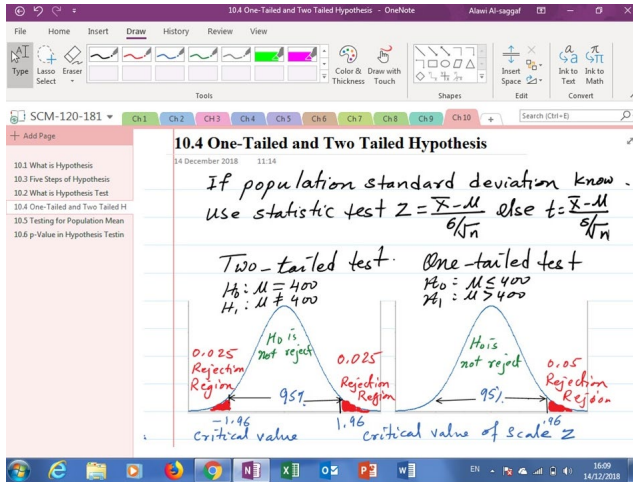 10.4 One-Tailed and Two Tailed Hypothesis - OneNote
Alawi Al-saggaf
File Home Insert Draw History Review View
Type
Lasso Select
Eraser
Color & Thickness
Draw with Touch
Insert Space
Ink to Text
Ink to Math
Tools
Shapes
Edit
Convert
SCM-120-181
Ch 1 Ch 2 CH 3 Ch 4 Ch 5 Ch 6 Ch 7 Ch 8 Ch 9 Ch 10 +
Search (Ctrl+E)
+ Add Page
10.1 What is Hypothesis
10.3 Five Steps of Hypothesis
10.2 What is Hypothesis Test
10.4 One-Tailed and Two Tailed H
10.5 Testing for Population Mean
10.6 p-Value in Hypothesis Testin
10.4 One-Tailed and Two Tailed Hypothesis
14 December 2018 11:14
If population standard deviation know.
use statistic test Z = x̄-μ / 6/√n else t = x̄-μ / 6/√n
Two-tailed test.
H₀: μ = 400
H₁: μ ≠ 400
H₀ is
not reject
0.025
Rejection
Region
95%
0.025
Rejection
Region
-1.96
1.96
critical value
One-tailed test
H₀: μ ≤ 400
H₁: μ > 400
H₀ is
not reject
95%
0.05
Rejection
Rejoon
.96
critical value of scale Z
EN
16:09
14/12/2018